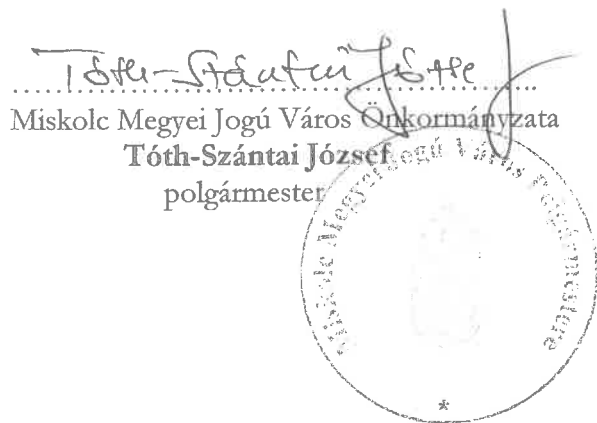 Tóth-Szántai József
Miskolc Megyei Jogú Város Önkormányzata
Tóth-Szántai József
polgármester
Miskolc Megyei Jogú Város Polgármestere
*